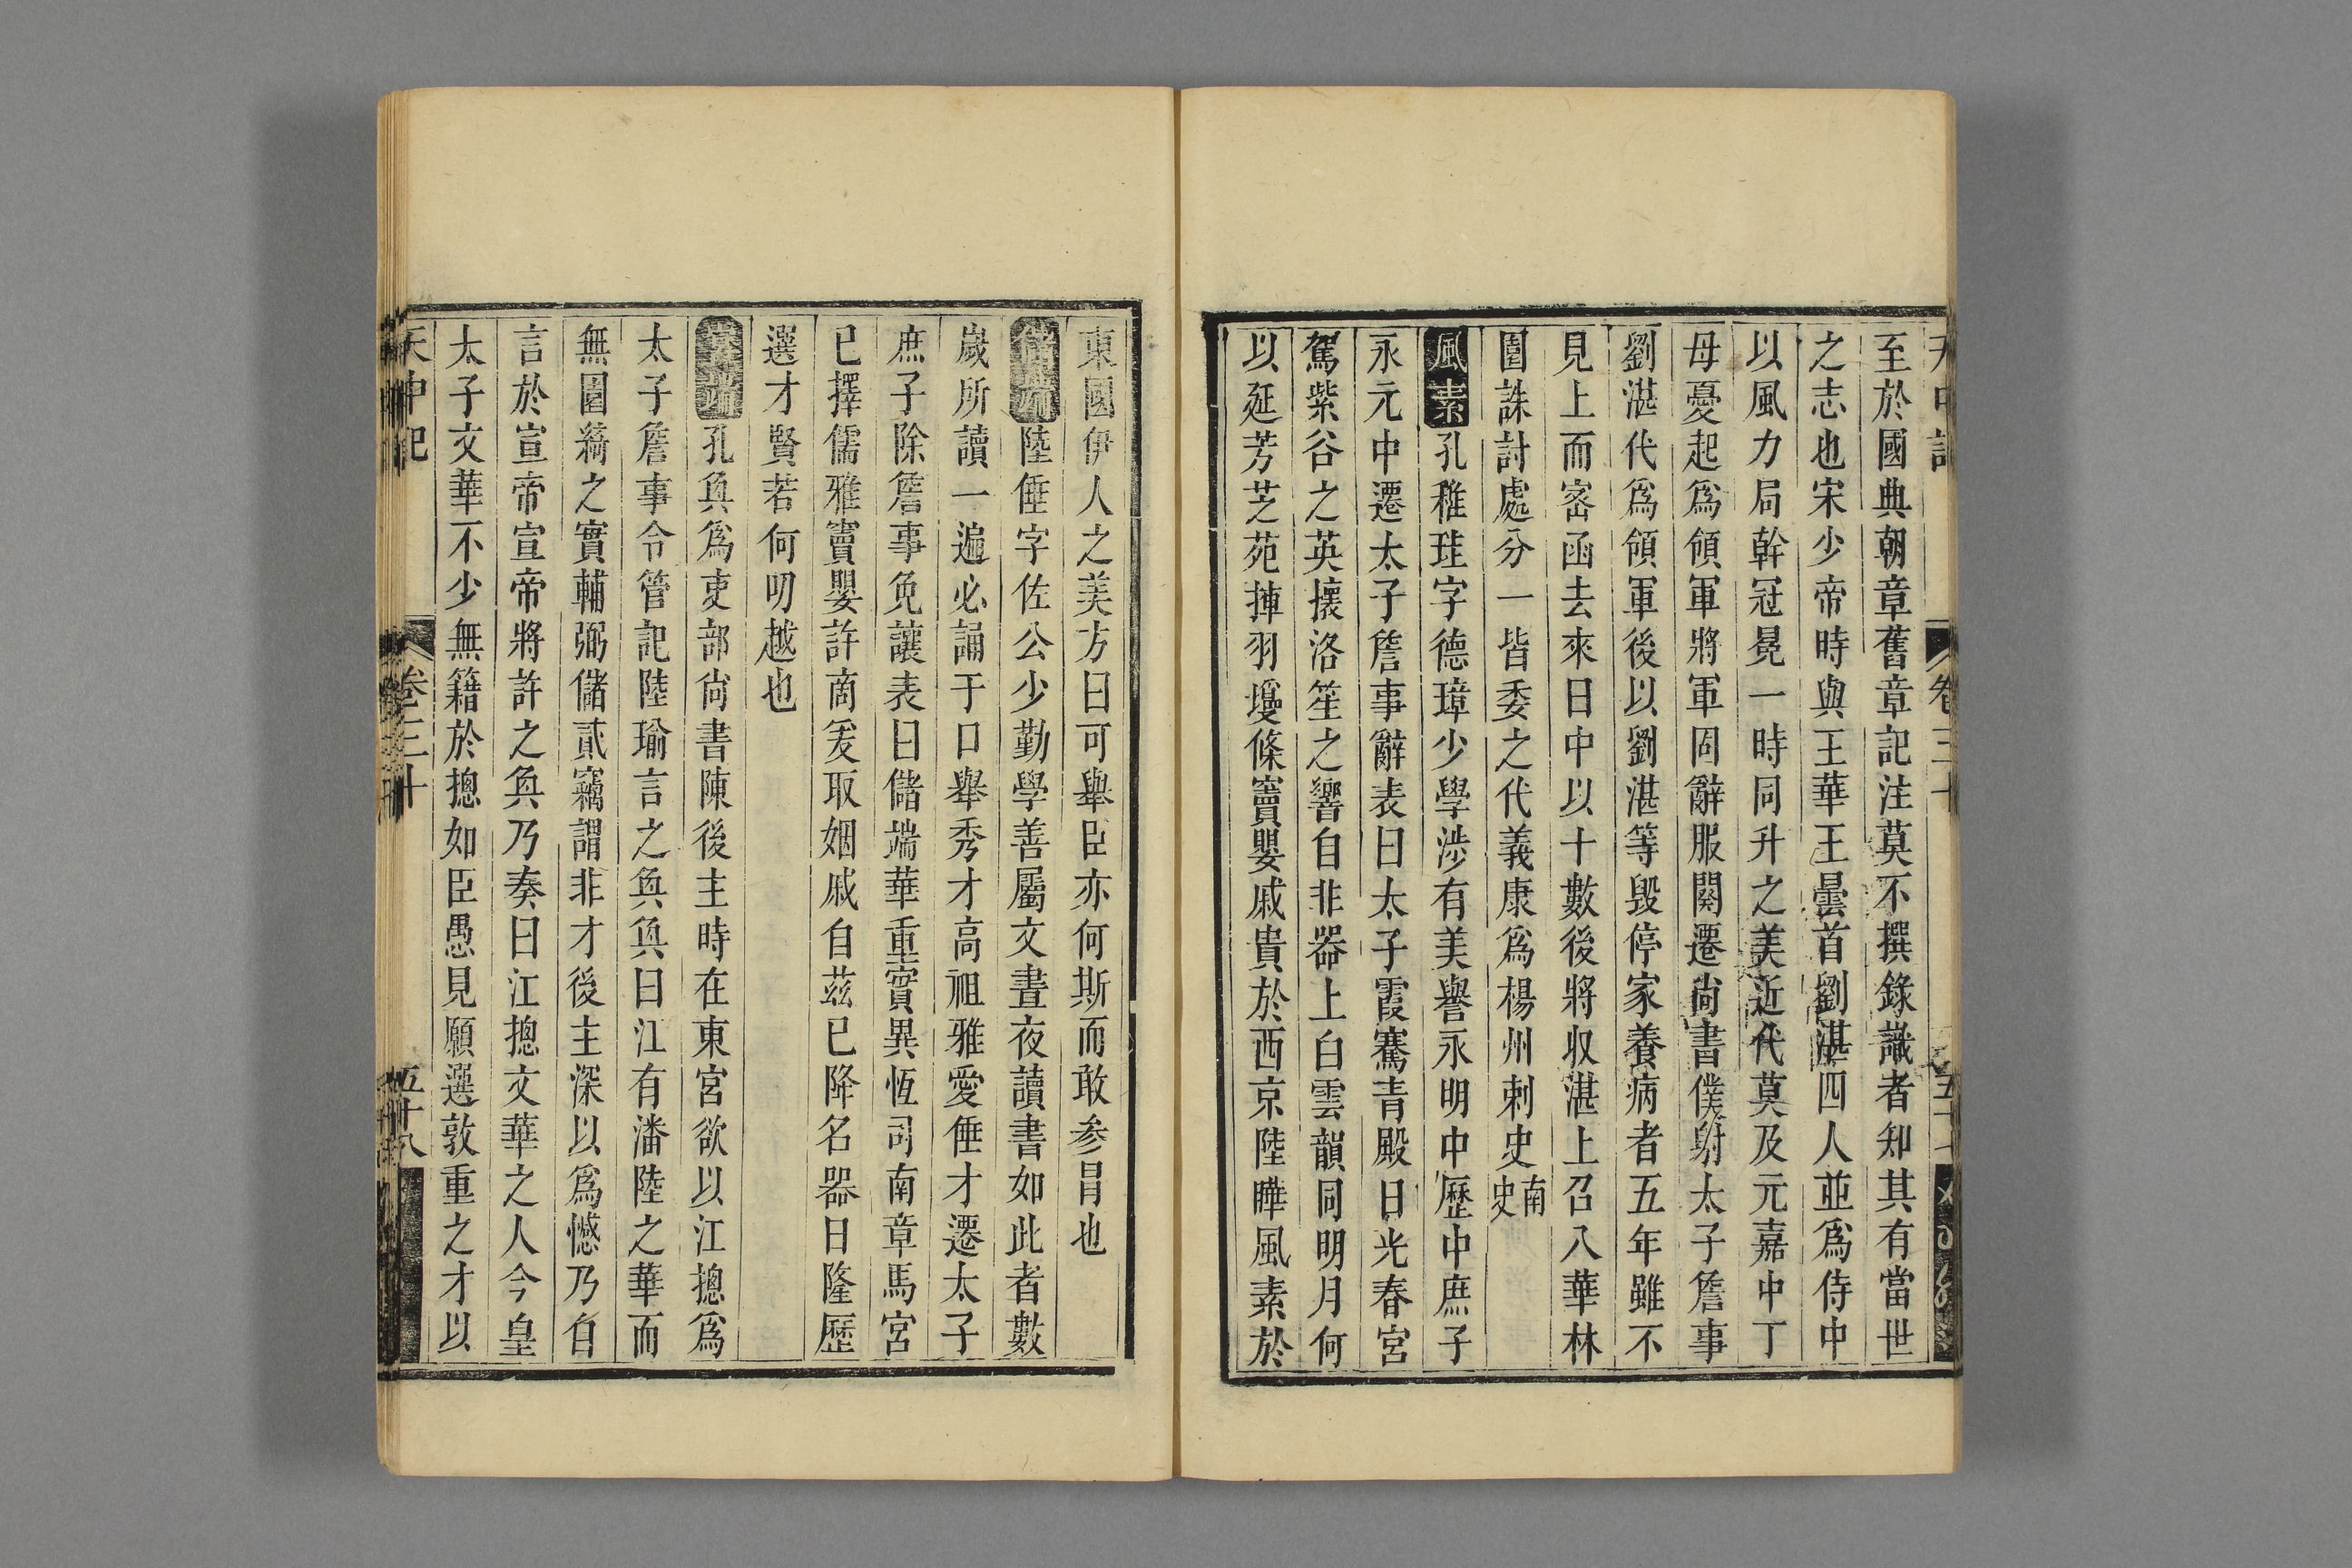 天中記
卷三十
至於國典朝章舊章記注莫不撰錄識者知其有當世
之志也宋少帝時與王華王曇首劉湛四人並爲侍中
以風力局幹冠冕一時同升之美近代莫及元嘉中丁
母憂起爲領軍將軍固辭服闋遷尚書僕射太子詹事
劉湛代爲領軍後以劉湛等毀停家養病者五年雖不
見上而密函去來日中以十數後將收湛上召入華林
園誅討處分一皆委之代義康爲楊州刺史南史
風素孔稚珪字德璋少學涉有美譽永明中歷中庶子
永元中遷太子詹事辭表曰太子霞騫青殿日光春宮
駕紫谷之英攘洛笙之響自非器上白雲韻同明月何
以延芳芝苑揮羽瓊條竇嬰戚貴於西京陸曄風素於
東國伊人之美方曰可舉臣亦何斯而敢參冒也
儲端陸倕字佐公少勤學善屬文晝夜讀書如此者數
歲所讀一遍必誦于口舉秀才高祖雅愛倕才遷太子
庶子除詹事免讓表曰儲端華重實異恆司南章馬宮
已擇儒雅竇嬰許商爰取姻戚自茲已降名器日隆歷
選才賢若何叨越也
孔奐爲吏部尚書陳後主時在東宮欲以江揔爲
太子詹事令管記陸瑜言之奐奐曰江有潘陸之華而
無園綺之實輔弼儲貳竊謂非才後主深以爲憾乃自
言於宣帝宣帝將許之奐乃奏曰江揔文華之人今皇
太子文華不少無籍於揔如臣愚見願選敦重之才以
天中記
卷三十
五十八